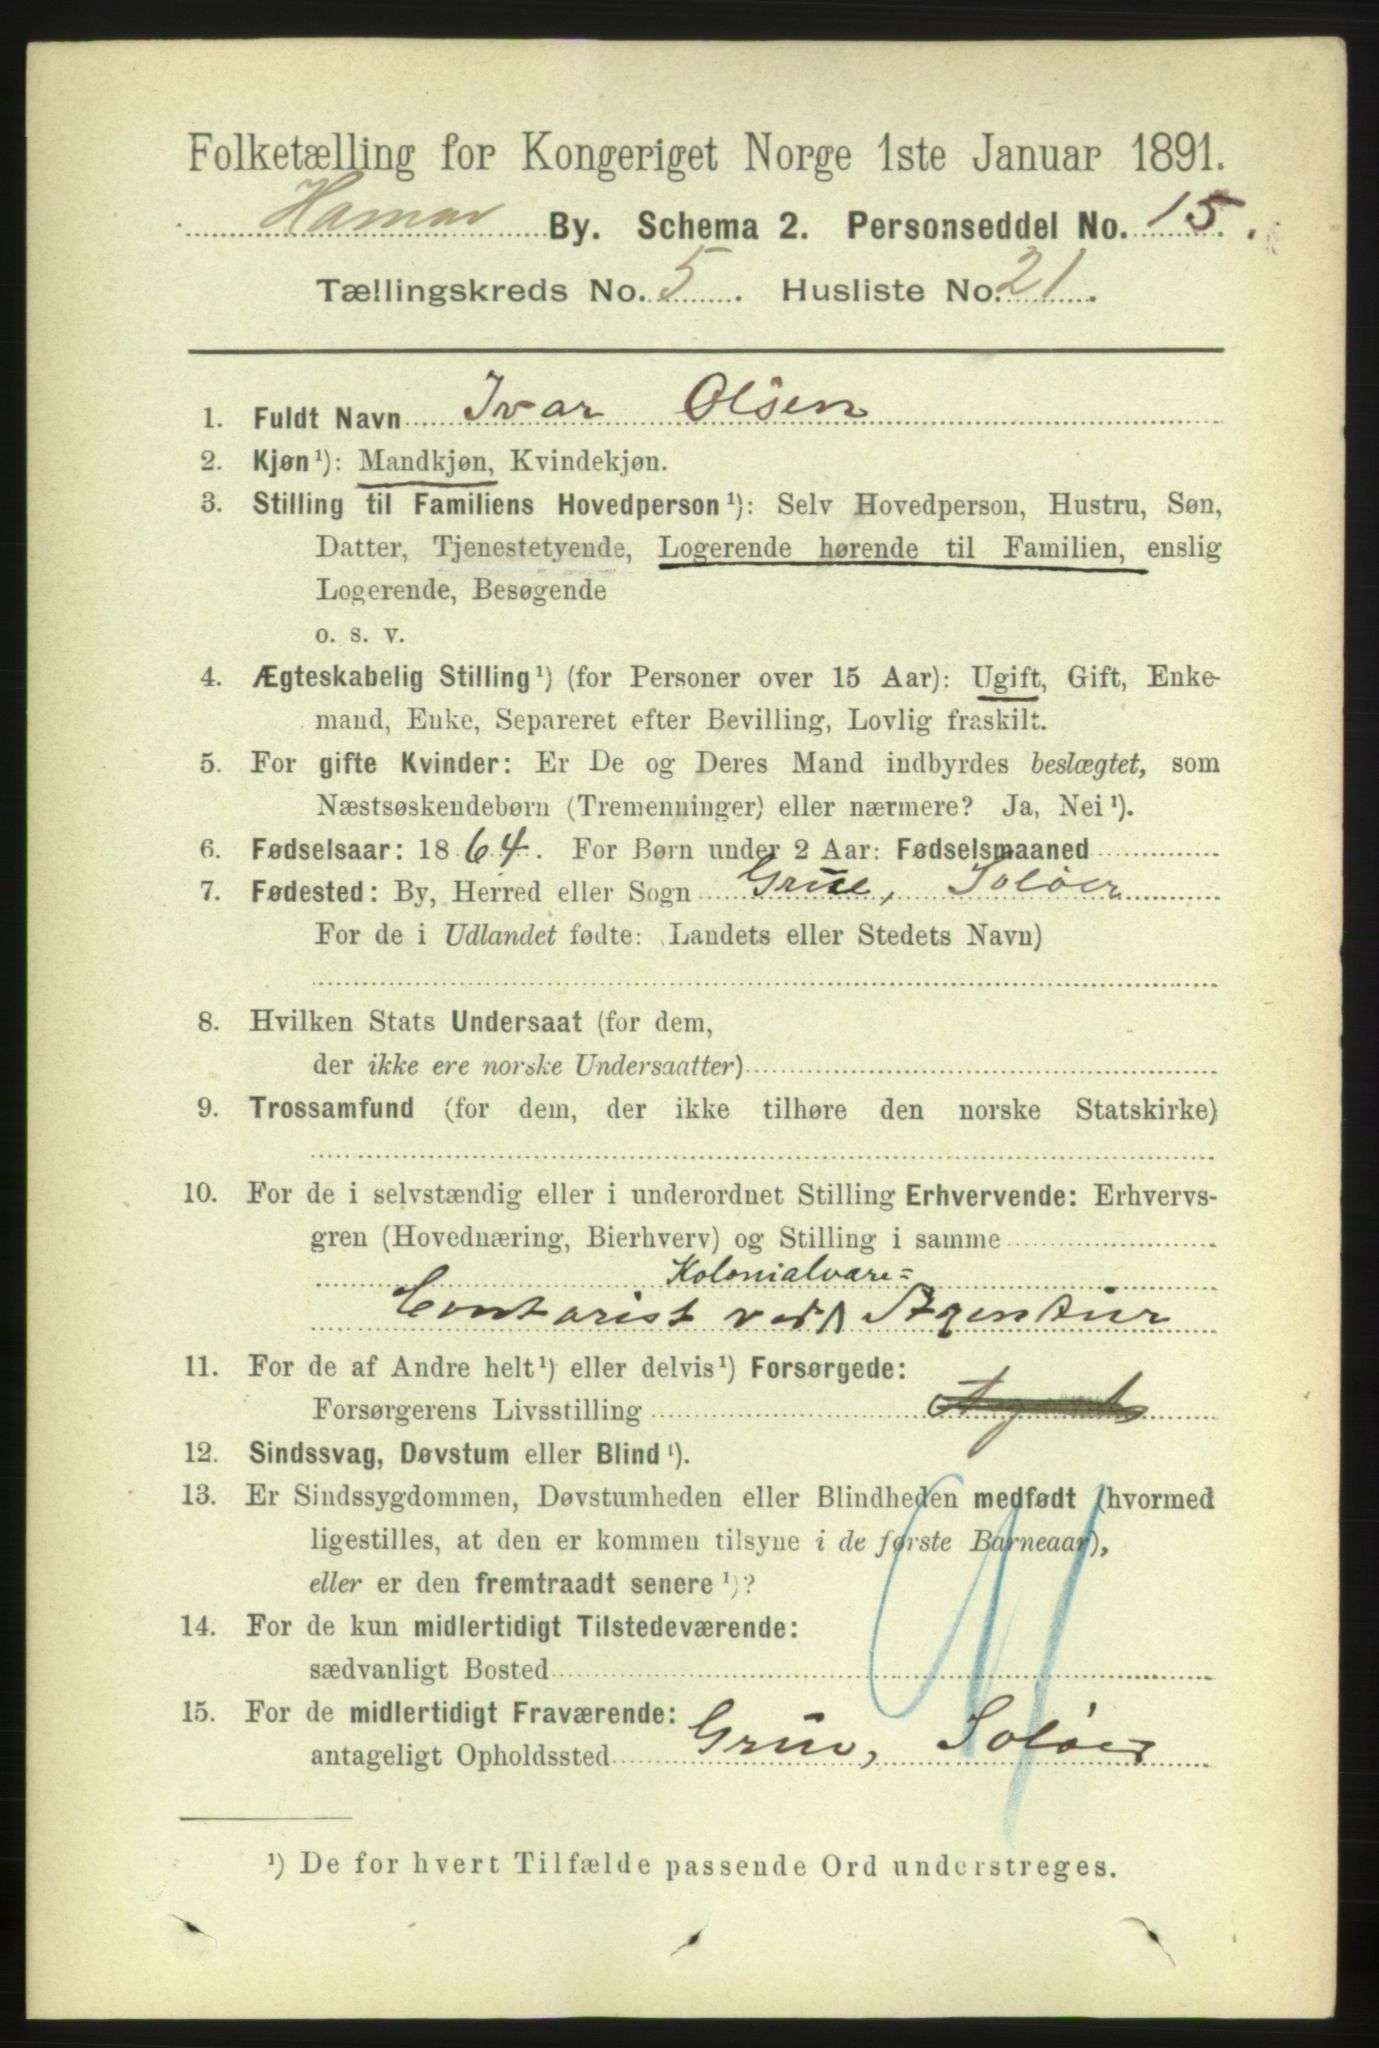 Folketælling for Kongeriget Norge 1ste Januar 1891.
Hamar By. Schema 2. Personseddel No. 15.
Tællingskreds No. 5. Husliste No. 21.
1. Fuldt Navn Ivar Olsen
2. Kjøn ¹): Mandkjøn, Kvindekjøn.
3. Stilling til Familiens Hovedperson ¹): Selv Hovedperson, Hustru, Søn,
Datter, Tjenestetyende, Logerende hørende til Familien, enslig
Logerende, Besøgende
o. s. v.
4. Ægteskabelig Stilling ¹) (for Personer over 15 Aar): Ugift, Gift, Enke-
mand, Enke, Separeret efter Bevilling, Lovlig fraskilt.
5. For gifte Kvinder: Er De og Deres Mand indbyrdes beslægtet, som
Næstsøskendebørn (Tremenninger) eller nærmere? Ja, Nei ¹).
6. Fødselsaar: 1864. For Børn under 2 Aar: Fødselsmaaned
7. Fødested: By, Herred eller Sogn Grue, Soløer
For de i Udlandet fødte: Landets eller Stedets Navn)
8. Hvilken Stats Undersaat (for dem,
der ikke ere norske Undersaatter)
9. Trossamfund (for dem, der ikke tilhøre den norske Statskirke)
10. For de i selvstændig eller i underordnet Stilling Erhvervende: Erhvervs-
gren (Hovednæring, Bierhverv) og Stilling i samme
Kolonialvare=
Contorist ved Agentur
11. For de af Andre helt ¹) eller delvis ¹) Forsørgede:
Forsørgerens Livsstilling
12. Sindssvag, Døvstum eller Blind ¹).
13. Er Sindssygdommen, Døvstumheden eller Blindheden medfødt (hvormed
ligestilles, at den er kommen tilsyne i de første Barneaar),
eller er den fremtraadt senere ¹)?
14. For de kun midlertidigt Tilstedeværende:
sædvanligt Bosted
15. For de midlertidigt Fraværende:
antageligt Opholdssted Grue, Soløer
¹) De for hvert Tilfælde passende Ord understreges.